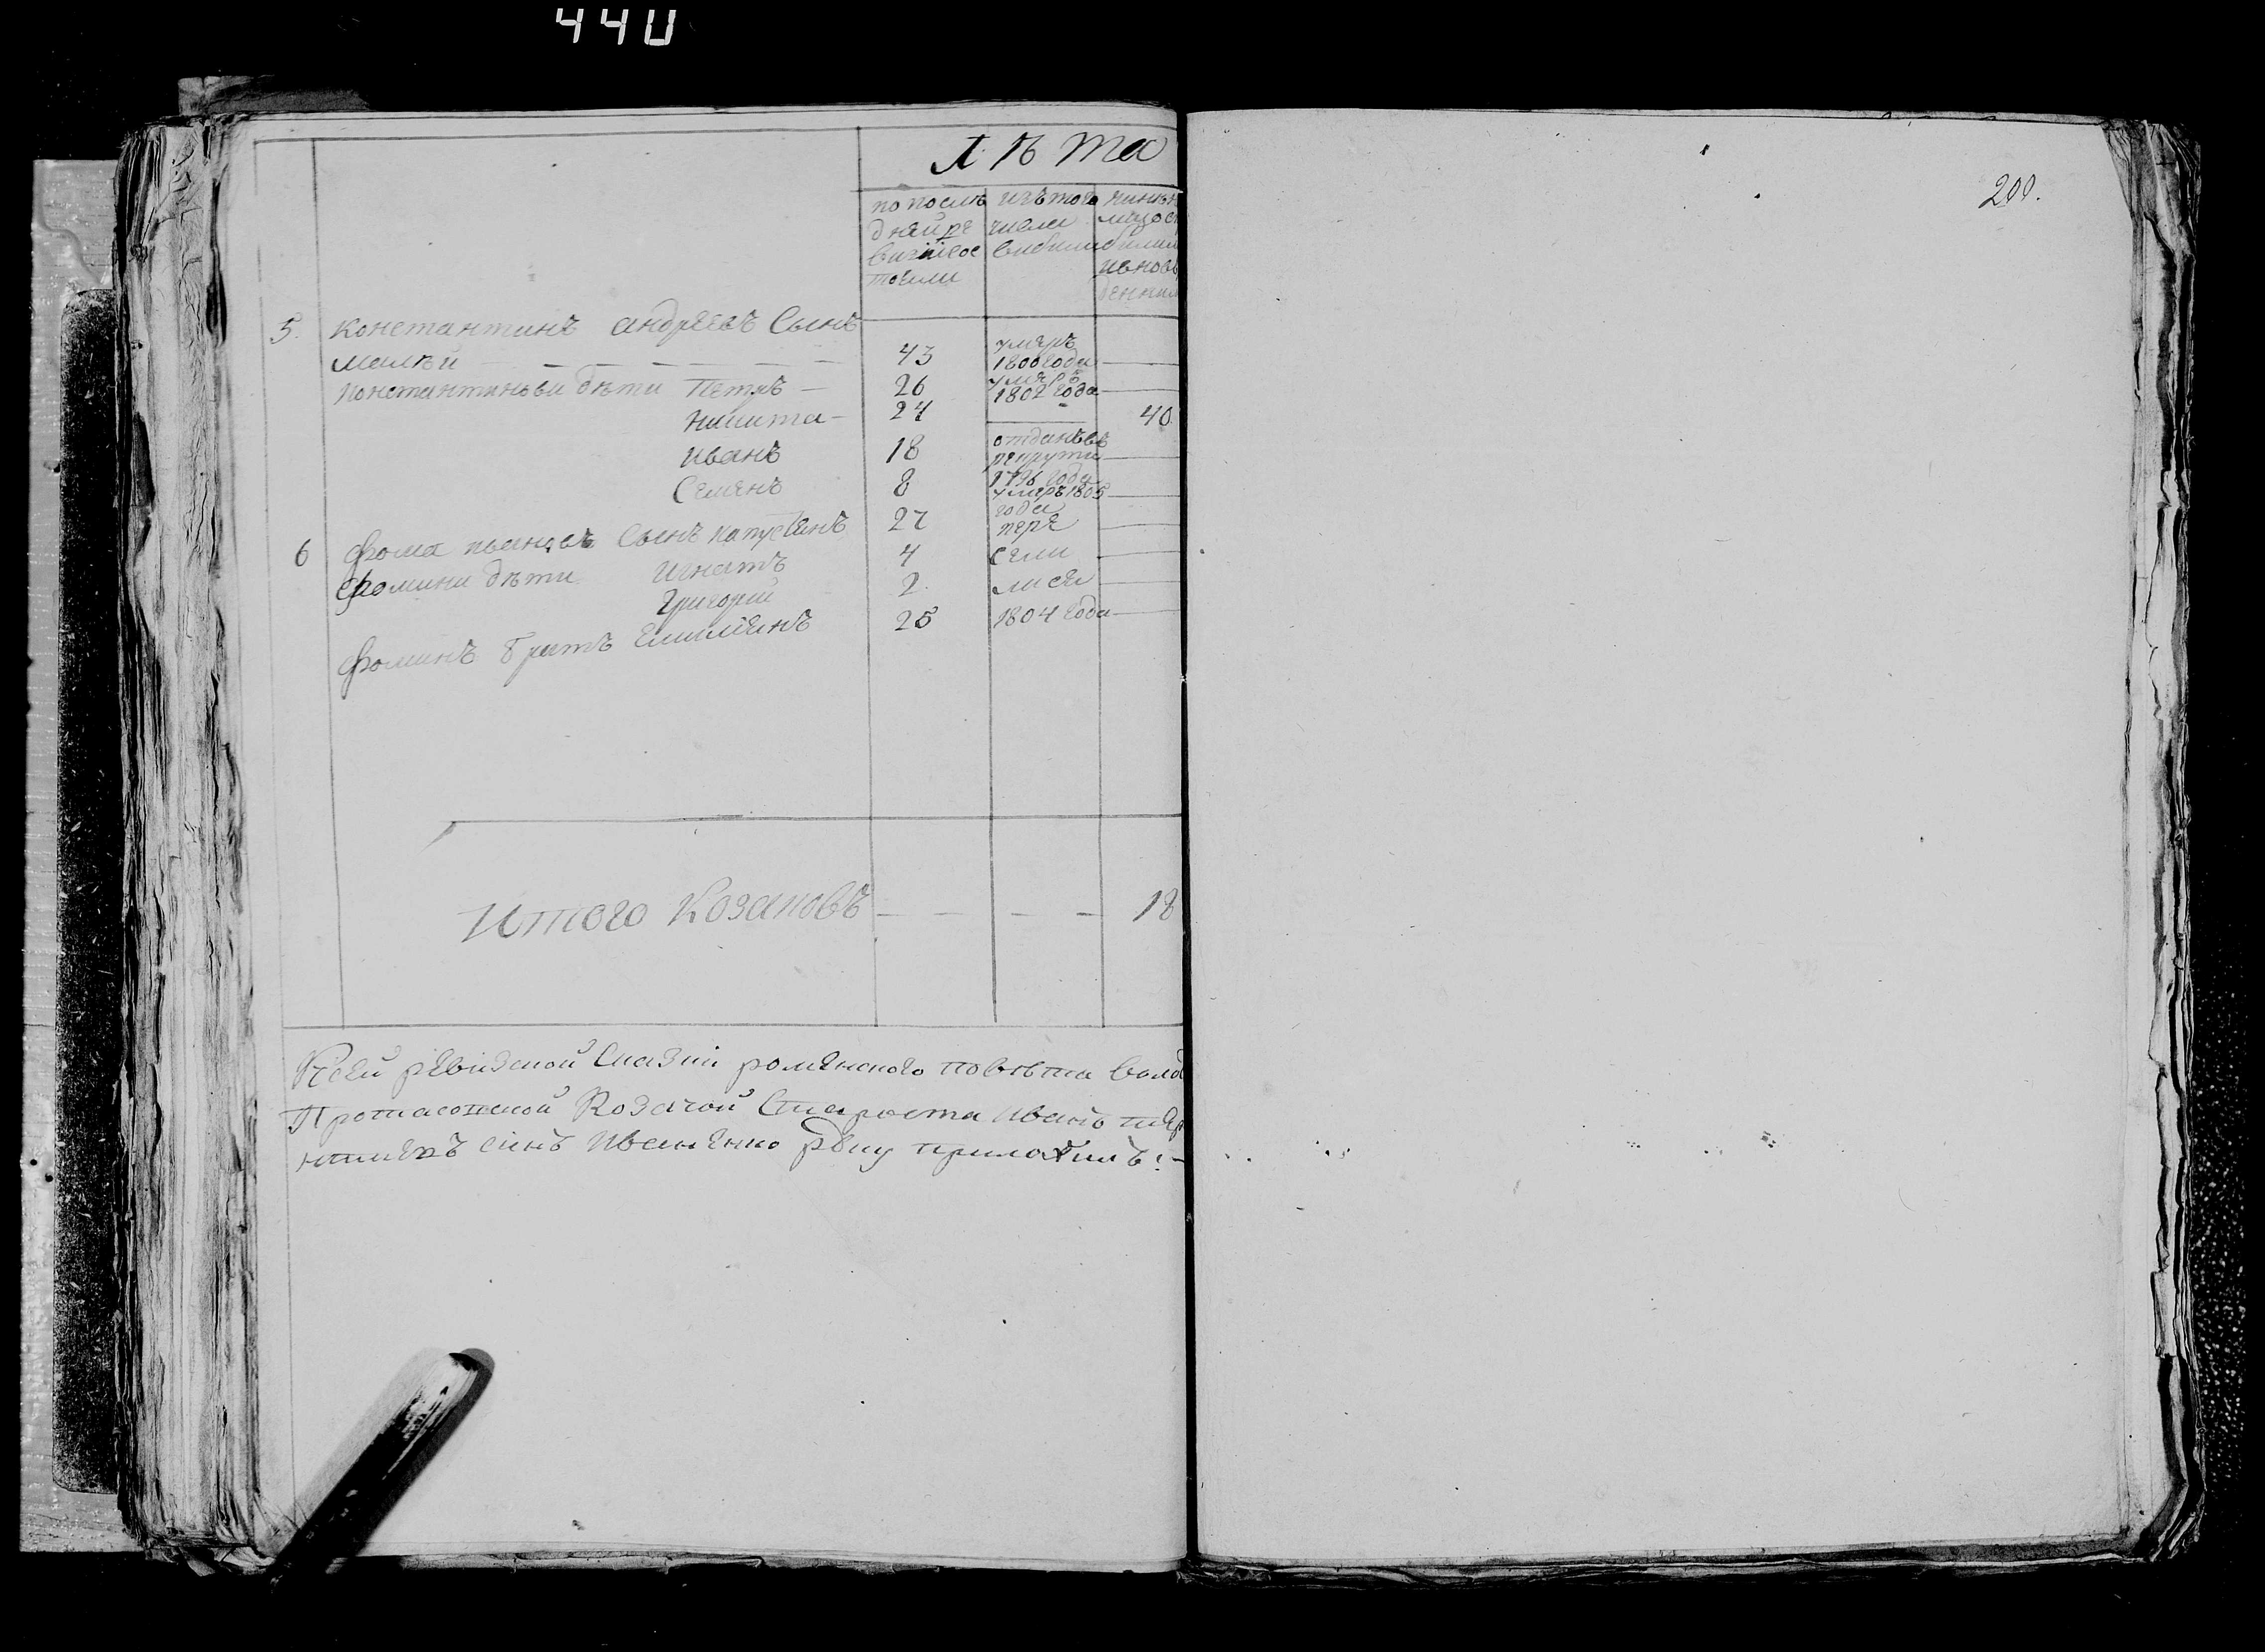 440
200.
Лѣта
по послѣ
дней ре
визіи сос
тоели
изъ того
числа
выбили
5. Константинъ андреевъ Сынъ
Малѣй — — — — — 43 умеръ 1800 года
Константиновы дѣти Петръ — 26 умеръ 1802 года
Никита — 24 — 40
Иванъ 18 отданъ въ рекруты 1796 года
Семенъ 8 умеръ 1805 года
6 Фома ивановъ Сынъ капустянъ 27 пере
Фомины дѣти Игнатъ 4 сели
Григорій 2. лися
Фоминъ братъ Емилиянъ 25 1804 года
Итого Козаковъ — — — — 18
К сей ревизской Сказки роменского повѣта
Козачой Староста Иванъ
синъ Иваненко руку приложилъ: —